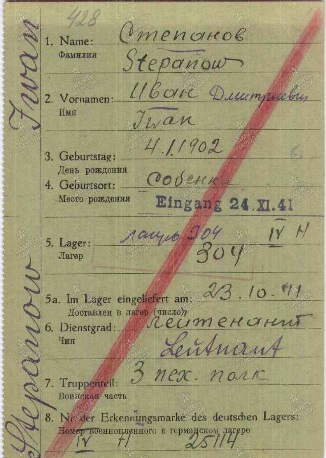 428
1. Name: Степанов
Фамилия
Stepanow
2. Vornamen: Иван Дмитриевич
Имя
Iwan
3. Geburtstag: 4.1.1902
День рождения
4. Geburtsort:
Место рождения
Eingang 24. XI. 41
5. Lager: лагерь 304 IV H
Лагер 304
5a. Im Lager eingeliefert am: 23.10.41
Доставлен в лагер (число)
6. Dienstgrad: Лейтенант
Чин
Leutnant
7. Truppenteil: 3 пех. полк
Воинская часть
8. Nr. der Erkennungsmarke des deutschen Lagers:
Номер военнопленного в германском лагере
IV H 25114
Stepanow Iwan